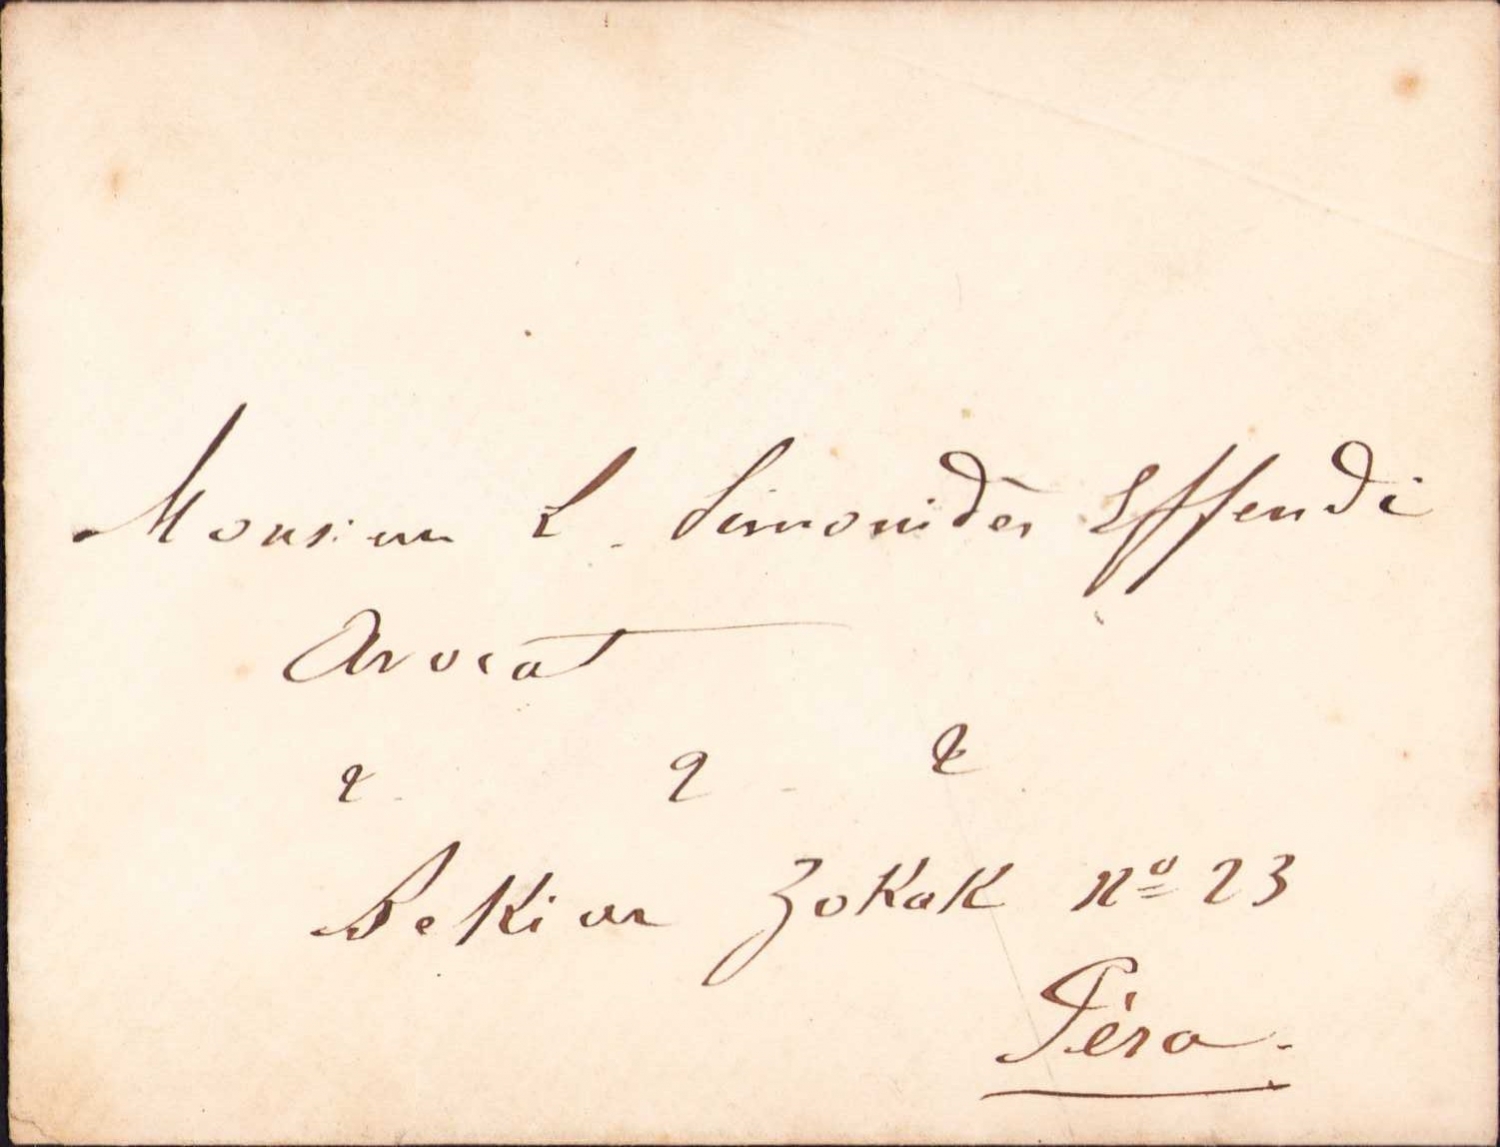 Monsieur L. Simonidès Effendi
Avocat
&c. &c. &c.
Bekiar Zokak Nº 23
Péra.